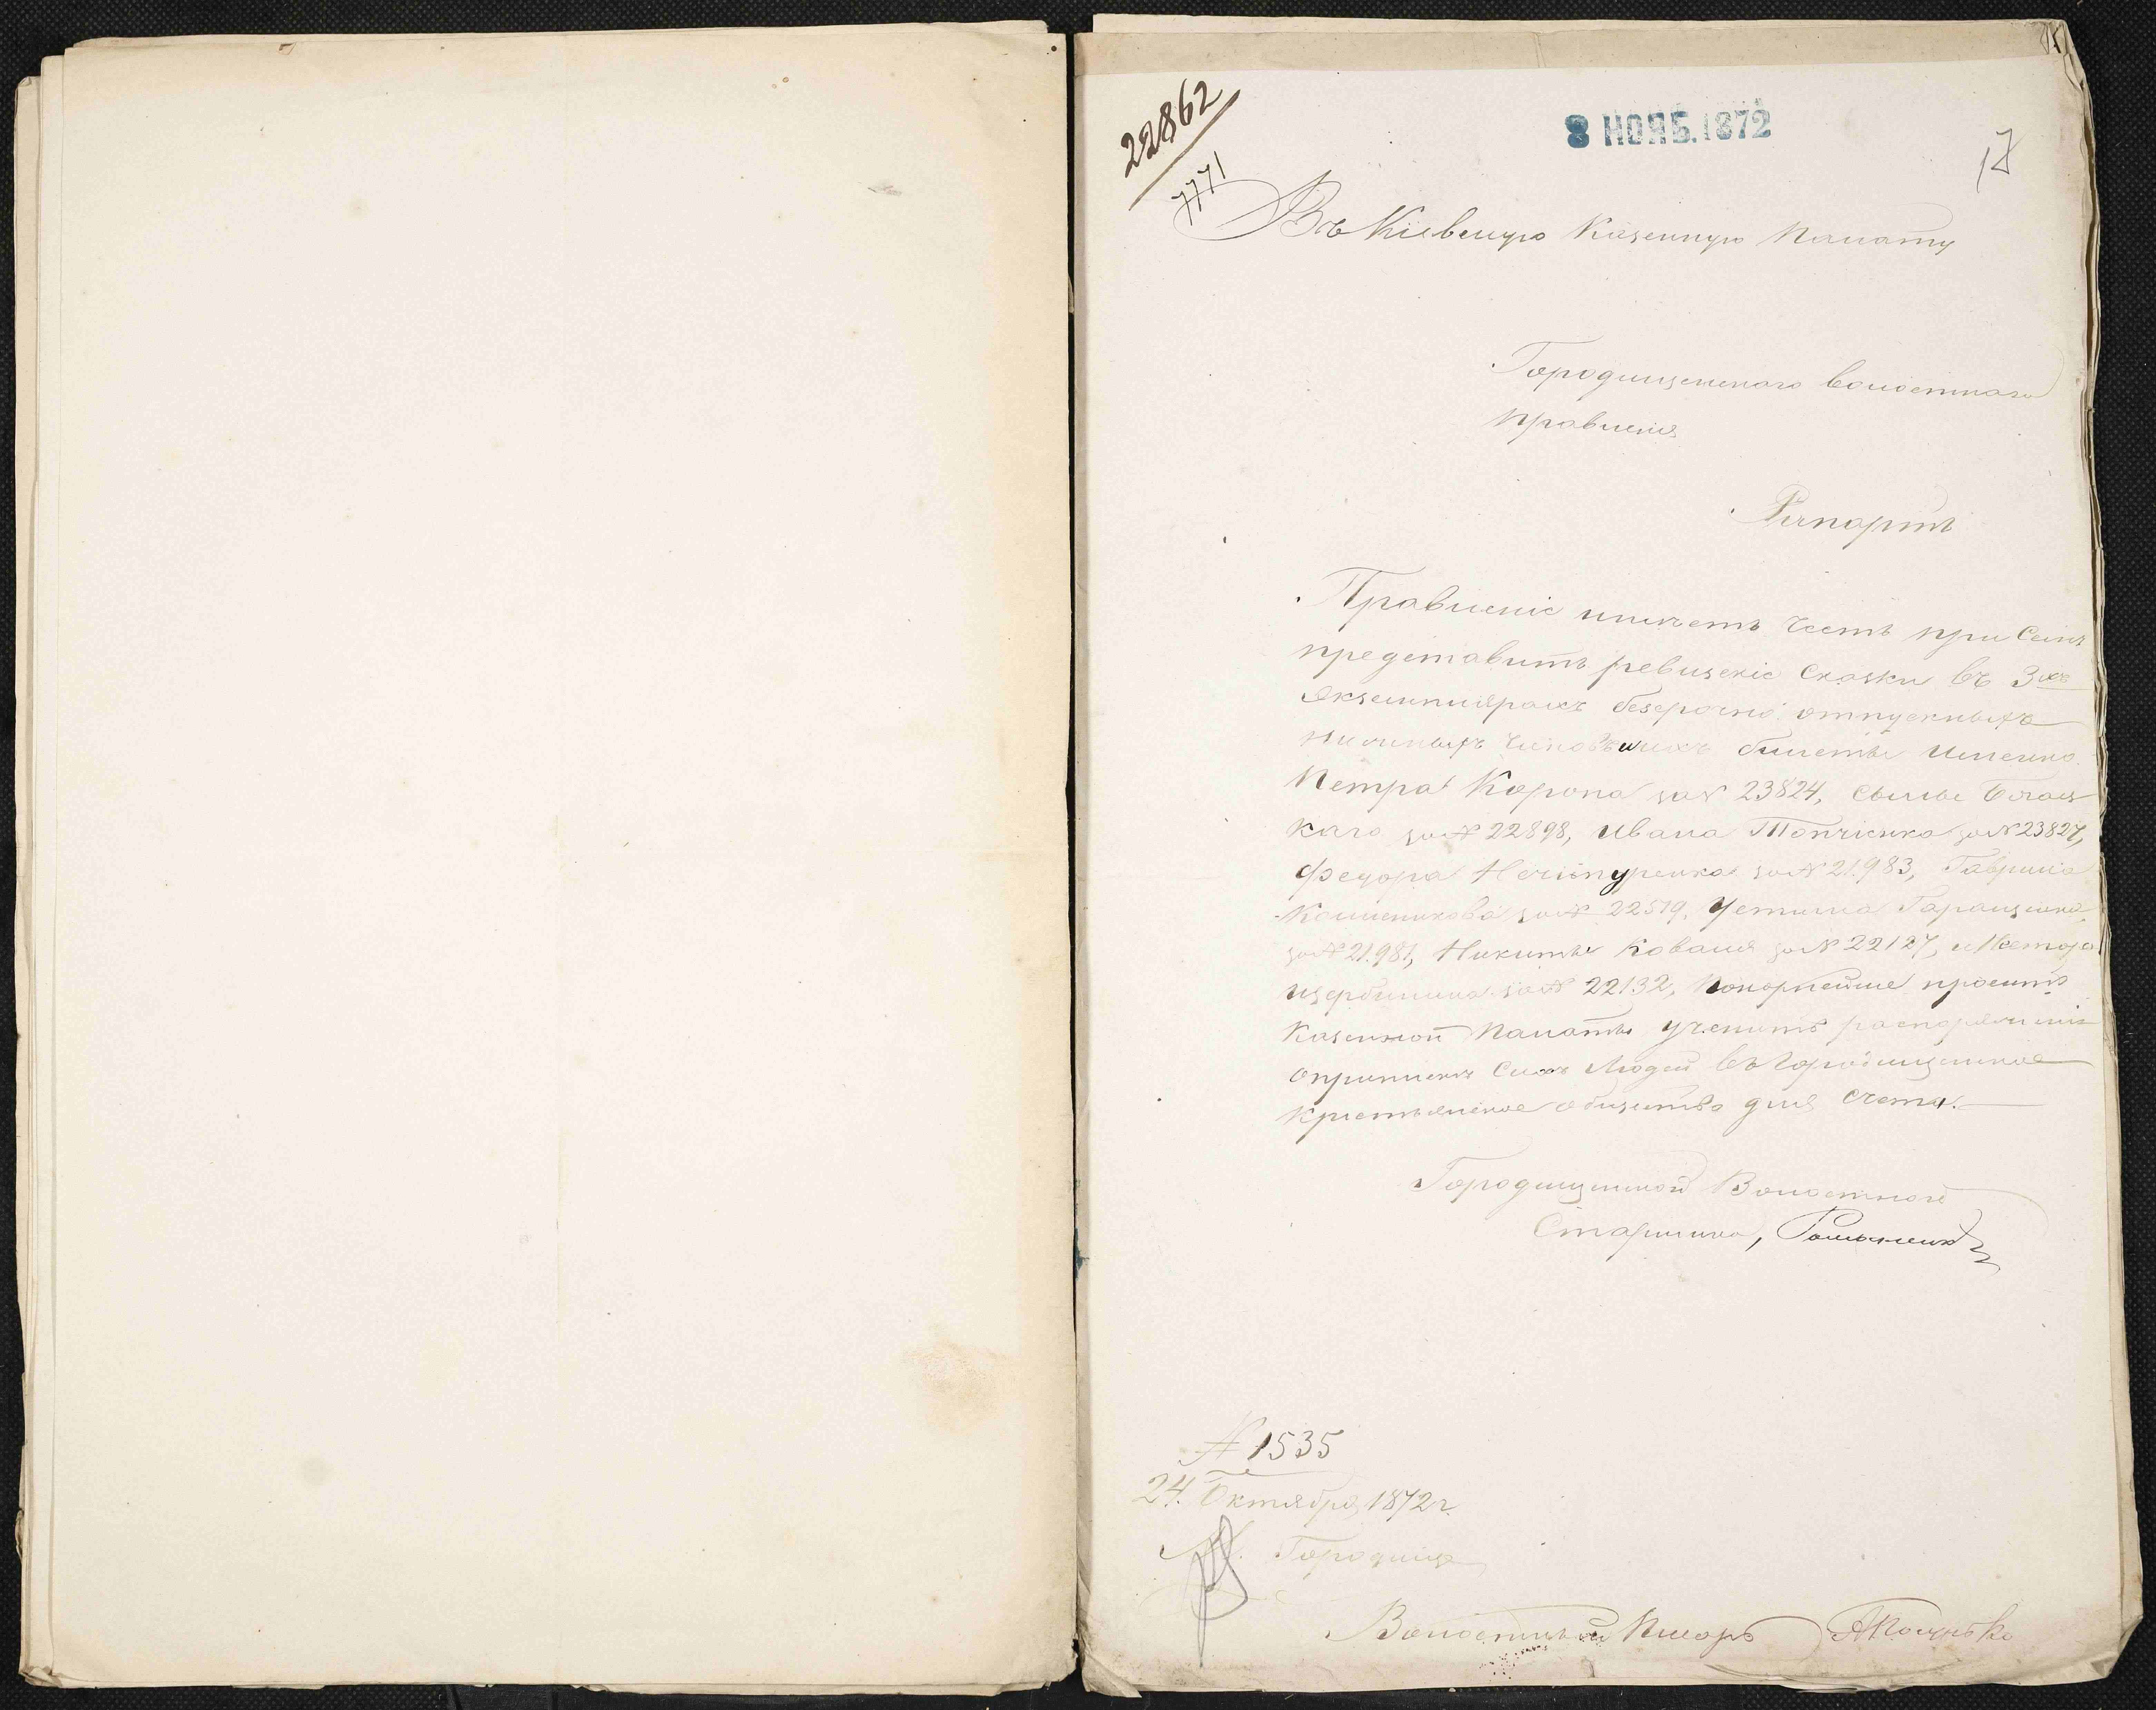 22862
7771
8 НОЯБ. 1872
17
Въ Кіевскую Казенную Палату
Городищенскаго волостнаго
правленія
Рапортъ
Правленіе имѣетъ честь при семъ
представить ревизскіе сказки въ 3хъ
экземплярахъ безсрочно отпускныхъ
нижныхъ чиновъ ихъ билеты именно
Петра Корона за № 23824,
каго за № 22898, Ивана Топчіенка за № 23827,
Федора Нечипуренка за № 21.983, Гаврила
за № 22519, Устима Гаращенка
за № 21.981, Никиты Коваля за № 22127, и
за № 22132, Покорнейше проситъ
Казенной Палаты учинить распоряженіе
о припискѣ сихъ людей въ Городищенское
крестьянское общество для счета.
Городищенской Волостной
Старшина, Романенко
№ 1535
24. Октября 1872 г.
М. Городище
Волостный Писарь